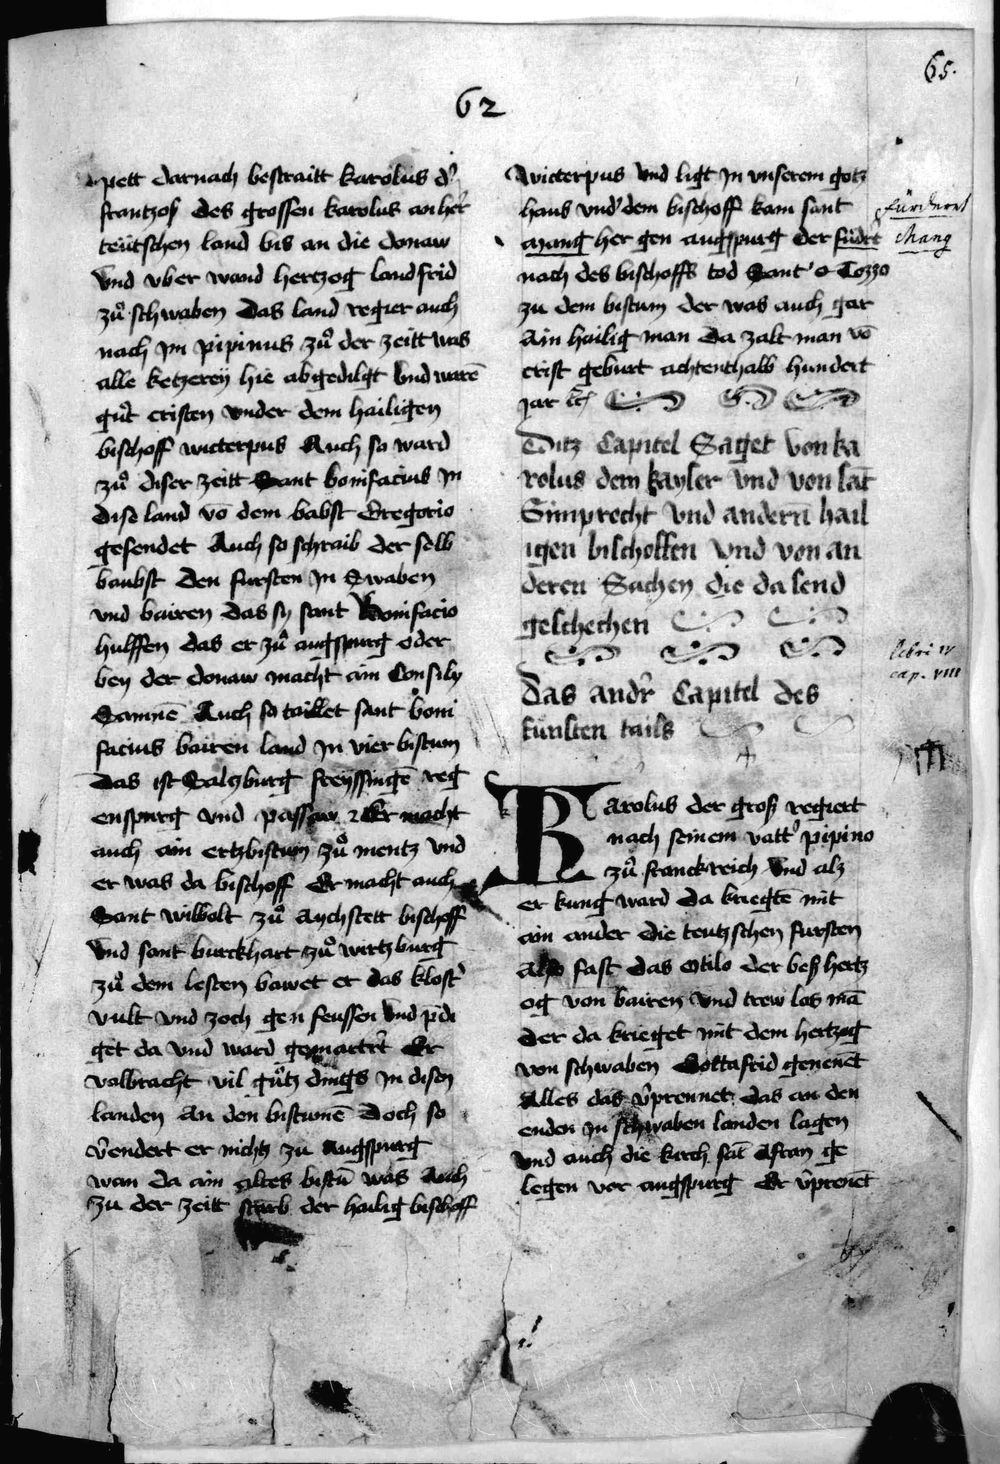 65.
62
pett darnach bestraitt karolus d'
frantzoß des grossen karolus an her
teütschen land bis an die donaw
vnd vber wand hertzog landfrid
zů schwaben Das land regier auch
nach im pipinus zů der zeitt was
alle ketzereÿ hie abgedilgt vnd warē
gůt cristen vnder dem hailigen
bischoff wicterpus Auch so ward
zů diser zeitt Sant bonifacius in
dise land vō dem babst Gregorio
gesendet Auch so schraib der selb
baubst den fursten in Swaben
vnd bairen das sy sant Bonifacio
hulffen das er zů augspurg oder
bey der donaw macht ain Consily
Samnē Auch so taillet sant boni
facius bairen land in vier bistum
Das ist Saltzburg freyssingē reg
enspurg vnd passaw Er macht
auch ain ertzbistum zů mentz vnd
er was da bischoff Er macht auch
Sant wilbolt zů Aychstett bischoff
vnd sant burckhart zů wirtzburg
zů dem lesten bawet er das klost'
vult vnd zoch gen feussen vnd p̄di
get da vnd ward gemartert Er
valbracht vil gůtz dings in disen
landen an den bistumē Doch so
v̄endert er nichtz zu Augspurg
wan da ain altes bistū was Auch
zu der zeitt starb der hailig bischoff
wicterpus vnd ligt in vnserem gotz
haus vnd' dem bischoff kam sant
mang her gen augspurg der fůdrt
nach des bischoffs tod Sant Tozzo
zu dem bistum der was auch gar
Ain hailig man da zalt man vō
crist geburt achtenthalb hundert
jar
fürdert
Mang
Ditz Capitel Saget von ka
rolus dem kayser vnd von sāt
Simprecht vnd andern hail
igen bischoffen vnd von an
deren Sachen die da send
geschechen
libri IV
cap. VIII
Das andr̄ Capitel des
funften tails
Karolus der groß regiert
nach seinem vatt' pipino
zů franckreich vnd alz
er kung ward da kriegtē mit
ain ander die teutzschen fursten
Also fast das Otilo der beß hertz
og von bairen vnd trew los mā
der da krieget mit dem hertzog
von schwaben Gottafrid genenet
Alles das v̄prennet das an den
enden in schwaben landen lagen
vnd auch die kirch sāt Afran ge
legen vor augspurg Er v̄prenēt